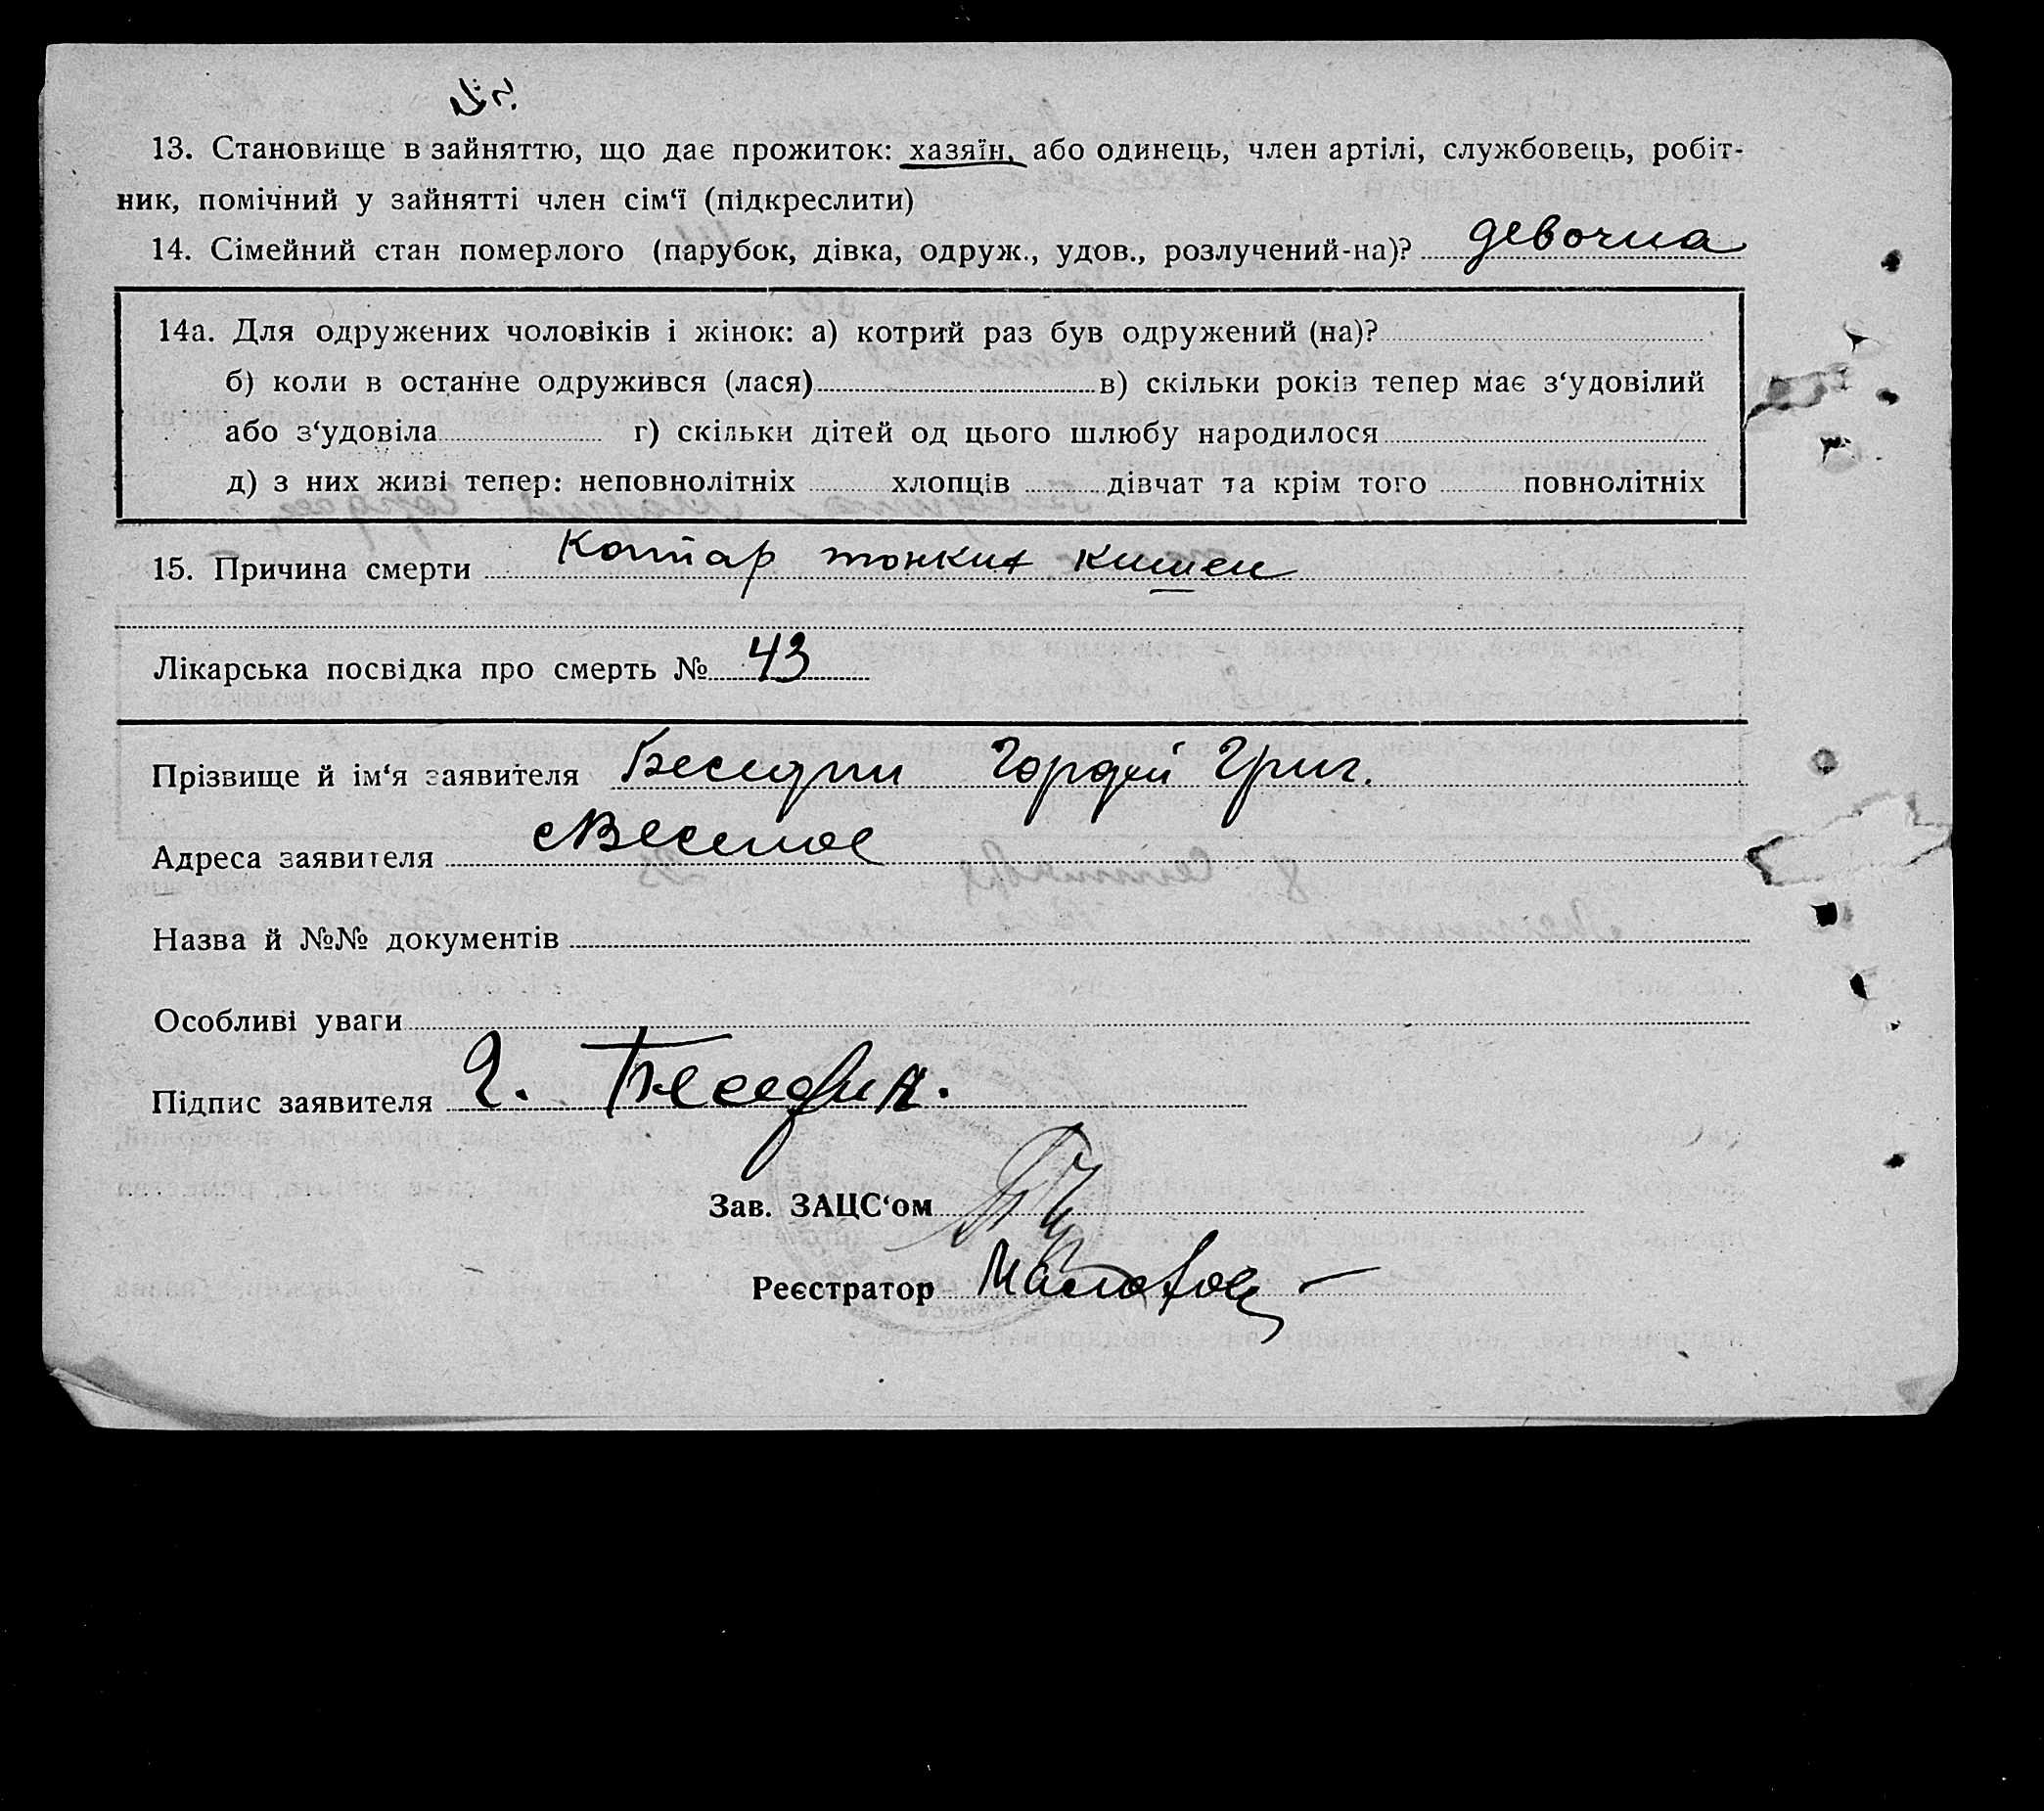 13. Становище в зайняттю, що дає прожиток: хазяїн, або одинець, член артілі, службовець, робіт-
ник, помічний у зайнятті член сім‘ї (підкреслити)
14. Сімейний стан померлого (парубок, дівка, одруж., удов., розлучений-на)? девочка
14а. Для одружених чоловіків і жінок: а) котрий раз був одружений (на)?
б) коли в останнє одружився (лася) в) скільки років тепер має з‘удовілий
або з‘удовіла г) скільки дітей од цього шлюбу народилося
д) з них живі тепер: неповнолітніх хлопців дівчат та крім того повнолітніх
15. Причина смерти Катар тонких кишек
Лікарська посвідка про смерть № 43
Прізвище й ім‘я заявителя Беседин Гордей Григ.
Адреса заявителя с Веселое
Назва й №№ документів
Особливі уваги
Підпис заявителя Г. Беседин.
Зав. ЗАЦС‘ом
Реєстратор